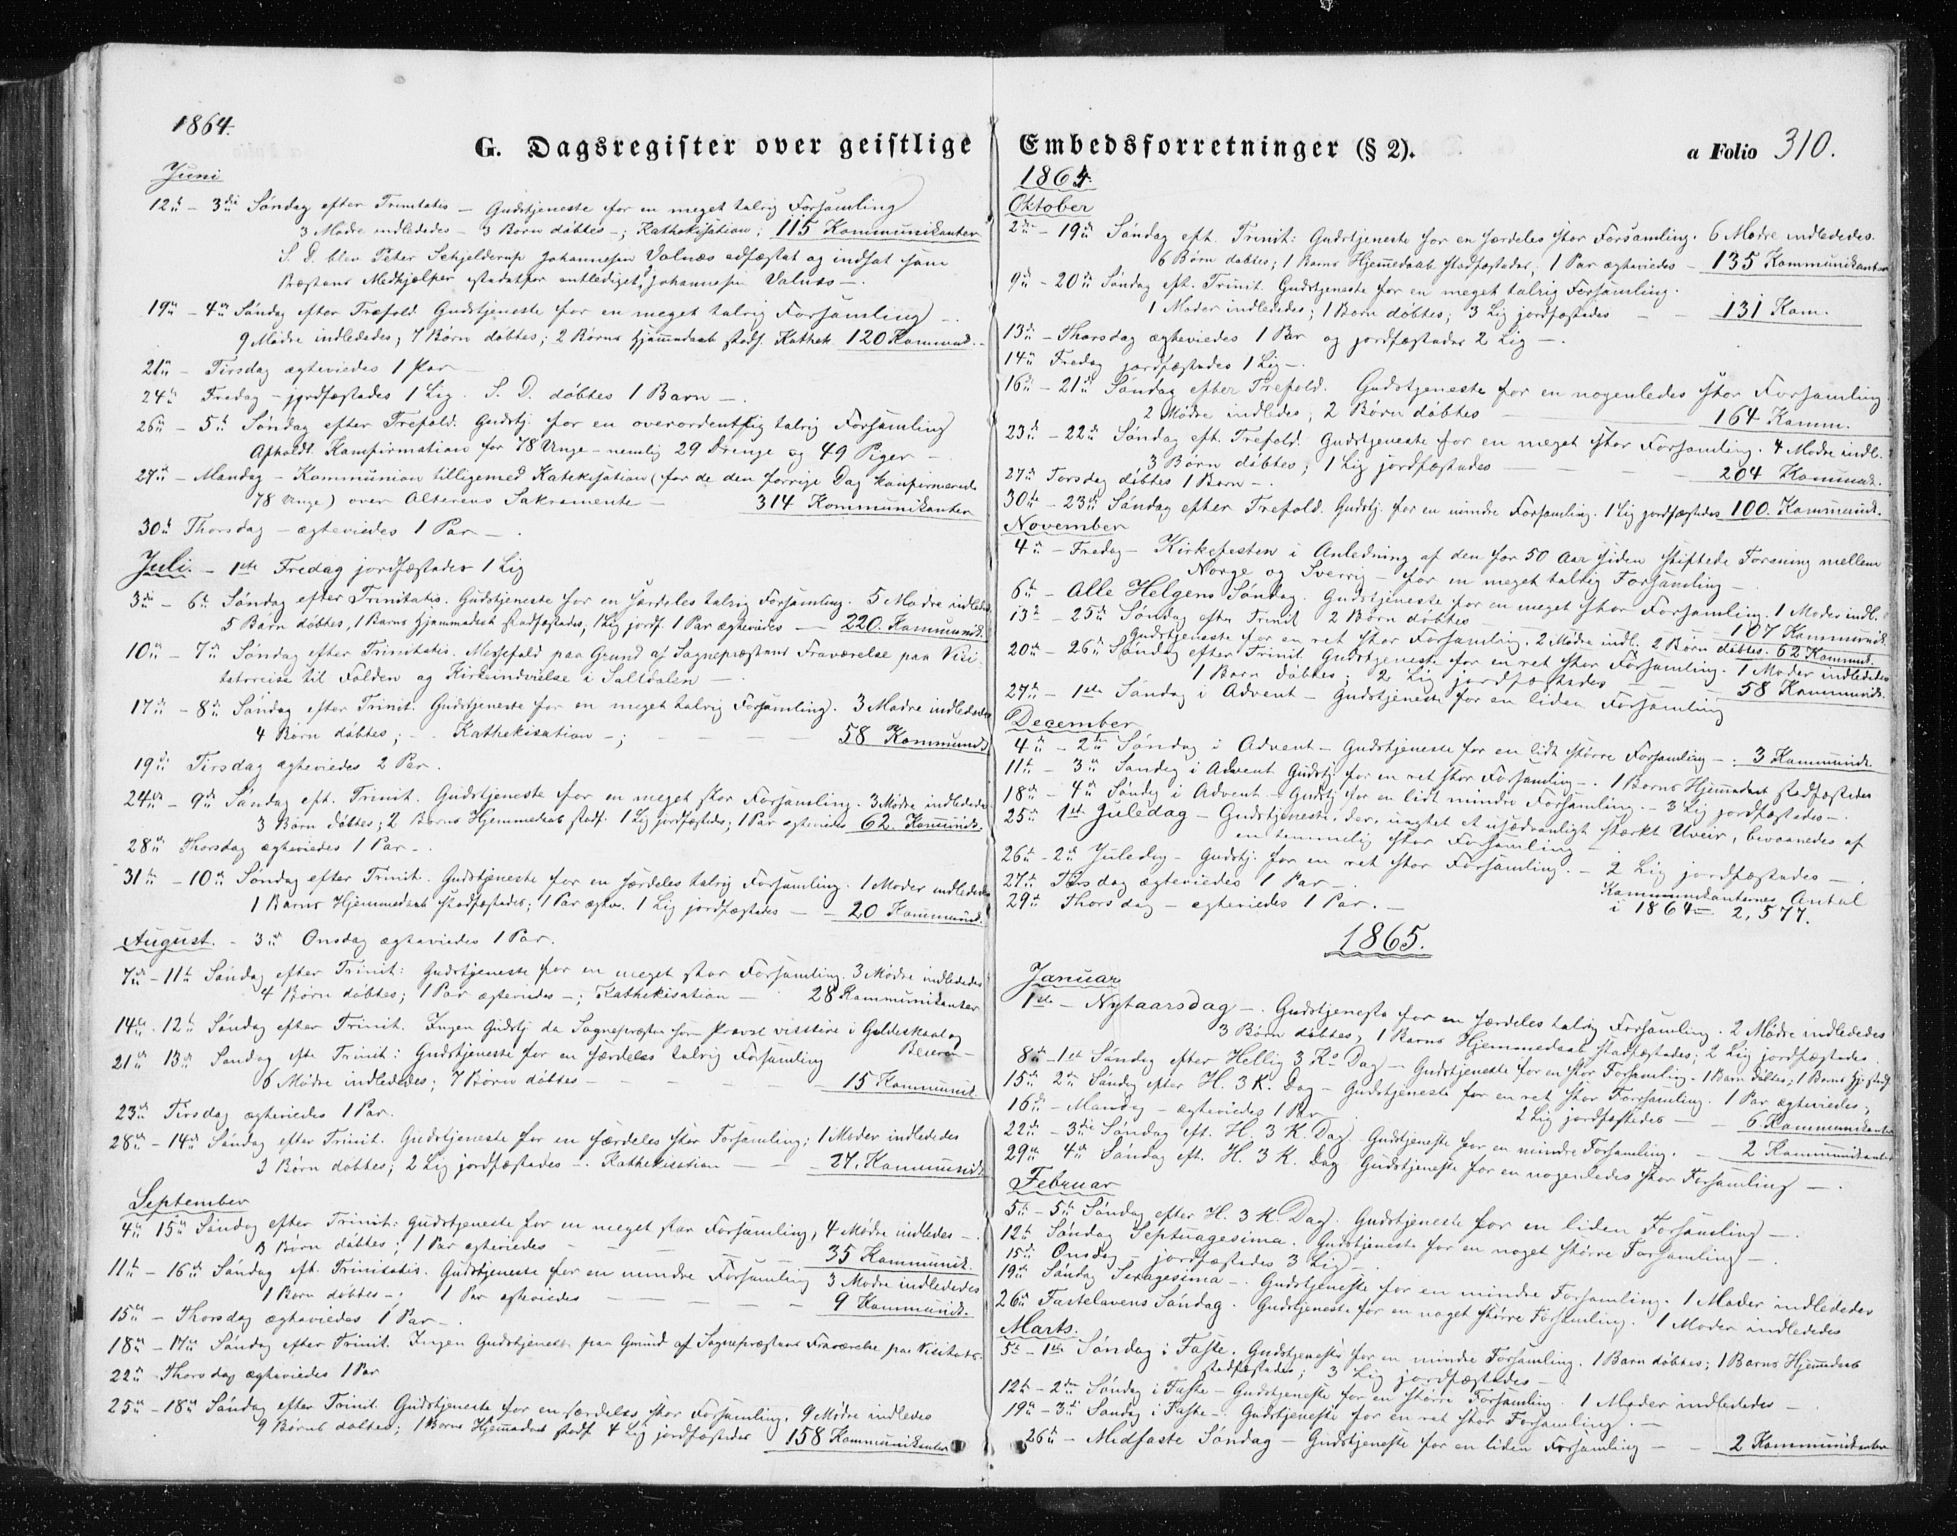 1864.
G. Dagsregister over geistlige
Juni
12te - 3die Søndag efter Trinitatis - Gudstjeneste for en meget talrig Forsamling
3 Mødre indlededes - 3 Børn døbtes -; Kathekisation; 115 Kommunikanter
S. D. blev Peter Schjelderup Johannesen Valnæs edfæstet og indsat som
Præstens Medhjælper istedetfor entlediget Johannesen Valnæs -.
19de - 4de Søndag efter Trefold. Gudstjeneste for en meget talrig Forsamling -.
9 Mødre indlededes; 7 Børn døbtes; 2 Børns Hjemmedaab stadf. Kathek. 120 Kommunik.
21de - Tirsdag ægteviedes 1 Par -
24de Fredag - jordfæstedes 1 Lig. S. D. døbtes 1 Barn -.
26de - 5te Søndag efter Trefold. Gudstj. for en overordentlig talrig Forsamling
Afholdt Konfirmation for 78 Unge - nemlig 29 Drenge og 49 Piger -
27de - Mandag - Kommunion tilligemed Katekisation (for de den forrige Dag konfirmerede
78 Unge) over Alterens Sakramente - 314 Kommunikanter
30te Thorsdag - ægteviedes 1 Par -.
Juli. - 1ste Fredag jordfæstedes 1 Lig
3die - 6te Søndag efter Trinitatis. Gudstjeneste for en særdeles talrig Forsamling. 5 Mødre indleded.
5 Børn døbtes, 1 Barns Hjemmedaab stadfæstedes, 1 Lig jordf. 1 Par ægteviedes - 220. Kommunik.
10de - 7de Søndag efter Trinitatis. Messefald paa Grund af Sognepræstens Fraværelse paa Visi-
tatsreise til Folden og Kirkeindvielse i Saltdalen -
17de - 8de Søndag efter Trinit. Gudstjeneste for en meget talrig Forsamling. 3 Mødre indlededes
4 Børn døbtes; - Kathekisation -; 58 Kommunik.
19de Tirsdag ægteviedes 2 Par.
24de - 9de Søndag eft. Trinit. Gudstjeneste for en meget stor Forsamling. 3 Mødre indlededes
3 Børn døbtes; 2 Børns Hjemmedaab stadf. 1 Lig jordfæstedes; 1 Par ægteviedes 62 Kommunik.
28de Thorsdag ægteviedes 1 Par -.
31te - 10de Søndag efter Trinit. Gudstjeneste for en særdeles talrig Forsamling. 1 Moder indlededes
1 Barns Hjemmedaab stadfæstedes; 1 Par ægtev. 1 Lig jordfæstedes - 20 Kommunik.
August. - 3die Onsdag ægteviedes 1 Par.
7de - 11te Søndag efter Trinit: Gudstjeneste for en meget stor Forsamling. 3 Mødre indlededes
4 Børn døbtes; 1 Par ægteviedes -; Kathekisation - 28 Kommunikanter
14de - 12te Søndag efter Trinit. Ingen Gudstj. da Sognepræsten som Provst visiterer i Gildeskaal og
Beieren -
21de 13de Søndag efter Trinit: Gudstjeneste for en særdeles talrig Forsamling
6 Mødre indlededes; 7 Børn døbtes - 15 Kommunik.
23de Tirsdag ægteviedes 1 Par.
28de - 14de Søndag efter Trinit. Gudstjeneste for en særdeles stor Forsamling; 1 Moder indlededes
3 Børn døbtes; 2 Lig jordfæstedes -. Kathekisation - 27. Kommunik.
September
4de 15de Søndag efter Trinit: Gudstjeneste for en meget stor Forsamling, 4 Mødre indledes -.
3 Børn døbtes; 1 Par ægteviedes - 35 Kommunik.
11te - 16de Søndag eft. Trinitatis. Gudstjeneste for en mindre Forsamling 3 Mødre indlededes
1 Børn døbtes -; 1 Par ægteviedes - 9 Kommunik.
15de - Thorsdag ægteviedes 1 Par -.
18de - 17de Søndag efter Trinit. Ingen Gudstjeneste paa Grund af Sognepræstens Fraværelse paa Visitats.
22de Thorsdag ægteviedes 1 Par
25de - 18de Søndag efter Trinit. Gudstjeneste for en særdeles stor Forsamling. 9 Mødre indledes
9 Børns døbtes; 1 Barns Hjemmedaab stadf. 4 Lig jordfæstedes 158 Kommunikanter
Embedsforretninger (§ 2). a Folio 310.
1864.
Oktober
2den - 19de Søndag eft. Trinit: Gudstjeneste for en særdeles stor Forsamling. 6 Mødre indlededes.
6 Børn døbtes; 1 Barns Hjemmedaab stadfæstedes, 1 Par ægteviedes - 135 Kommunikanter
9de - 20de Søndag eft. Trinit. Gudstjeneste for en meget talrig Forsamling.
1 Moder indlededes; 1 Børn døbtes; 3 Lig jordfæstedes - 131 Kom.
13de - Thorsdag ægteviedes 1 Par og jordfæstedes 2 Lig -.
14de Fredag jordfæstedes 1 Lig -.
16de - 21de Søndag efter Trefold. Gudstjeneste for en nogenledes stor Forsamling
2 Mødre indledes; 2 Børn døbtes - 164 Komm.
23de - 22de Søndag eft. Trefold. Gudstjeneste for en meget stor Forsamling. 4 Mødre indl.
3 Børn døbtes; 1 Lig jordfæstedes - 204 Kommunik.
27de Torsdag døbtes 1 Barn -.
30te - 23de Søndag efter Trefold. Gudstj. for en mindre Forsamling. 1 Lig jordfæstedes 100. Kommunik.
November
4de - Fredag - Kirkefesten i Anledning af den for 50 Aar siden stiftede Forening mellem
Norge og Sverrig - for en meget talrig Forsamling -
6te - Alle Helgens Søndag. Gudstjeneste for en meget stor Forsamling. 1 Moder indl.
13de - 25de Søndag efter Trinit 2 Børn døbtes - 107 Kommunik.
Gudstjeneste for en ret stor Forsamling. 2 Mødre indl. 2 Børn døbtes. 62 Kommunik.
20de - 26de Søndag efter Trinit Gudstjeneste for en ret stor Forsamling. 1 Moder indledes
1 Barn døbtes; 2 Lig jordfæstedes - 58 Kommunik.
27de - 1ste Søndag i Advent - Gudstjeneste for en liden Forsamling
December
4de - 2den Søndag i Advent - Gudstjeneste for en lidt større Forsamling -. 3 Kommunik.
11te - 3die Søndag i Advent Gudstj. for en ret stor Forsamling -. 1 Barns Hjemmedaab stadfæstedes
18de - 4de Søndag i Advent - Gudstj. for en lidt mindre Forsamling. - 3 Lig jordfæstedes -.
25de 1ste Juledag - Gudstjeneste, der, uagtet et usædvanligt stærkt Uveir, bivaanedes af
en temmelig stor Forsamling -
26de - 2den Juledag - Gudstj. for en ret stor Forsamling. - 2 Lig jordfæstedes -
27de Tirsdag ægteviedes 1 Par -.
29de Thorsdag - ægteviedes 1 Par. -
Kommunikanternes Antal
i 1864 = 2,577.
1865.
Januar
1ste - Nytaarsdag -. Gudstjeneste for en særdeles talrig Forsamling. 2 Mødre indlededes
3 Børn døbtes, 1 Barns Hjemmedaab stadfæstedes; 2 Lig jordfæstedes.
8de - 1ste Søndag efter Hellig 3 K. Dag - Gudstjeneste for en stor Forsamling - 1 Barn døbtes; 1 Barns Hj. stadf.
15de 2den Søndag efter H. 3 K. Dag - Gudstjeneste for en ret stor Forsamling. 1 Par ægteviedes;
16de - Mandag - ægteviedes 1 Par - 2 Lig jordfæstedes - 6 Kommunikanter
22de - 3die Søndag eft. H. 3 K. Dag. Gudstjeneste for en mindre Forsamling. - 2 Kommunikanter
29de 4de Søndag eft. H. 3 K. Dag Gudstjeneste for en nogenledes stor Forsamling -.
Februar
5te - 5te Søndag efter H. 3 K. Dag. Gudstjeneste for en liden Forsamling -.
12te Søndag Septuagesima. Gudstjeneste for en noget større Forsamling -.
15de Onsdag - jordfæstedes 3 Lig -.
19de Søndag Sexagesima -. Gudstjeneste for en mindre Forsamling. 1 Moder indlededes
26de Fastelavens Søndag. Gudstjeneste for en noget større Forsamling. 1 Moder indlededes
Marts.
5te - 1ste Søndag i Faste. Gudstjeneste for en mindre Forsamling. 1 Barn døbtes; 1 Barns Hjemmedaab
stadfæstedes; 3 Lig jordfæstedes -
12te - 2den Søndag i Faste - Gudstjeneste for en større Forsamling. 1 Moder indlededes -
19de - 3die Søndag i Faste - Gudstjeneste for en ret stor Forsamling. -
26de - Midfaste Søndag - Gudstjeneste for en liden Forsamling - 2 Kommunikanter